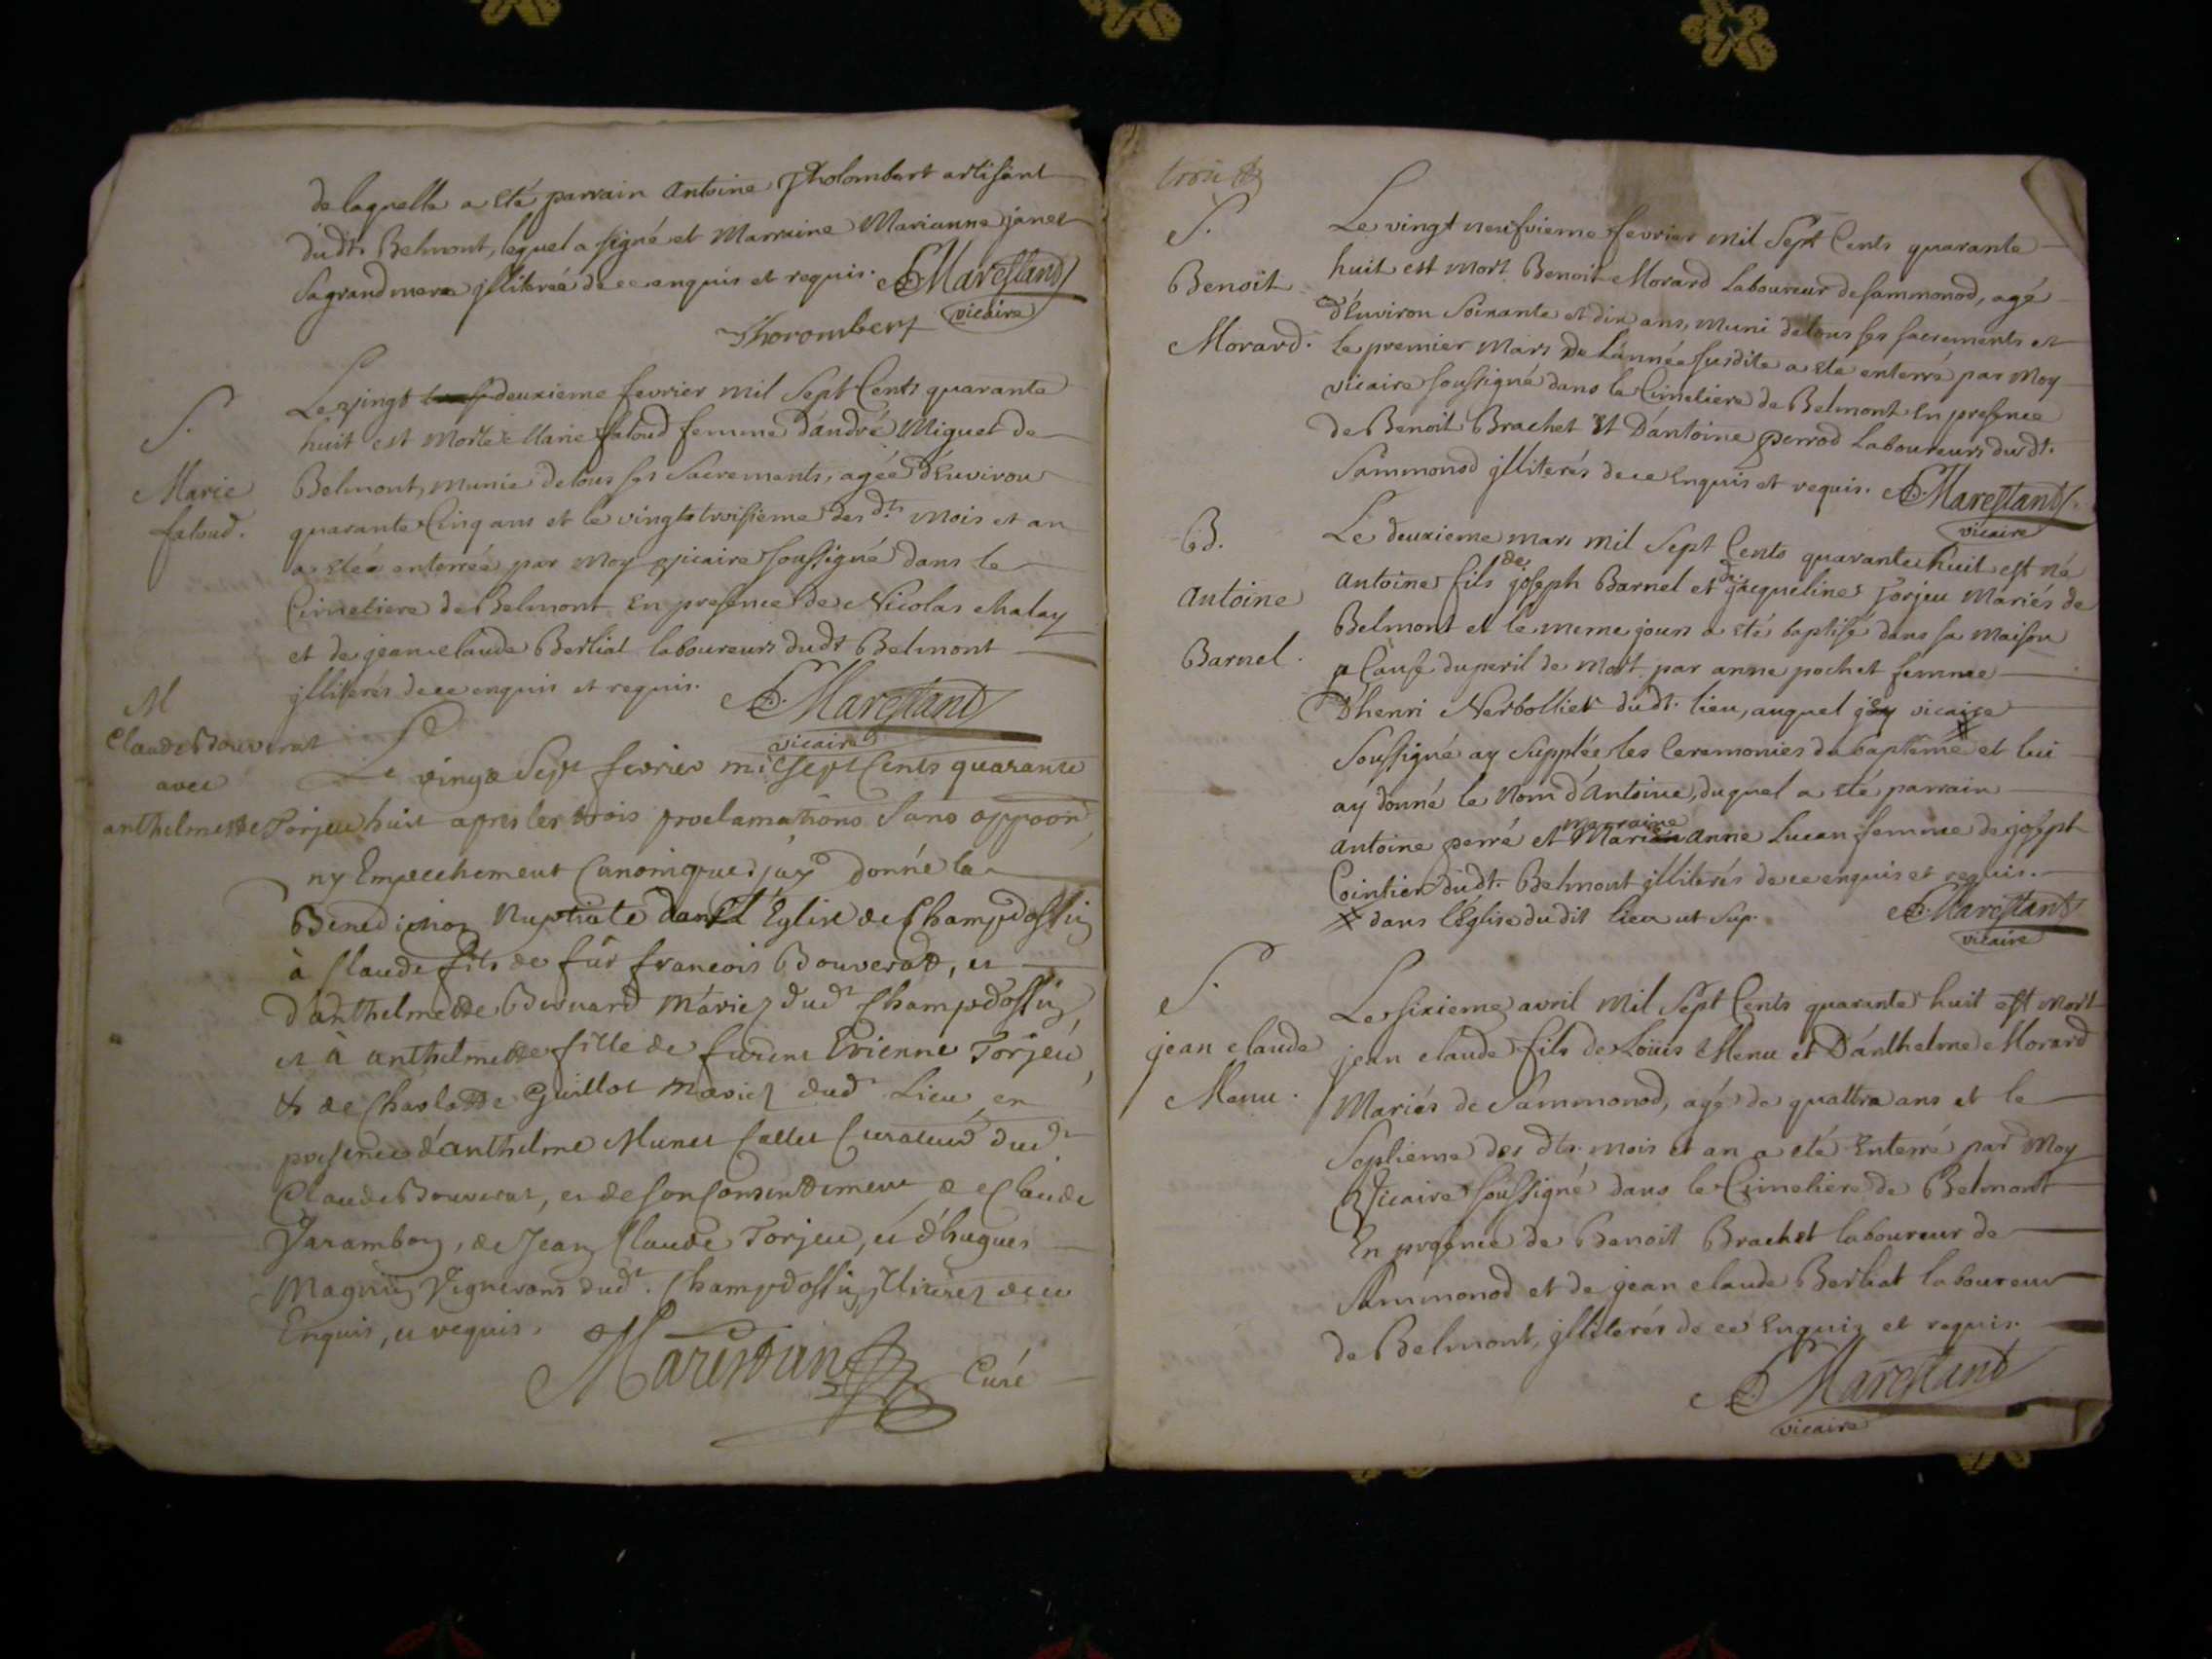 de laquelle a eté parrain antoine Tholombert artisant
dudt. Belmont, lequel a signé et Marraine Marianne janet
sa grand mere jlliterée de ce enquis et requis. Marestand
vicaire
Thorombert
S.
Marie
fatoud.
Le vingt deuxieme fevrier mil Sept Cents quarante
huit est Morte Marie fatoud femme d'andré Miguet de
Belmont, munie de tous ses Sacrements, agée d'Environ
quarante Cinq ans et le vingt troisieme des dts. mois et an
a eté enterrée par Moy vicaire soussigné dans le
Cimetiere de Belmont En presence de Nicolas chalay
et de jean claude Berliat laboureurs dudt Belmont
jlliterés de ce enquis et requis.
Marestand
vicaire
M
Claude Bouverat
avec
anthelmette Torjeu
Le vingt Sept fevrier mil sept Cents quarante
huit apres les trois proclamations Sans oppoon
ny Empechement Canonique j'ay donné la
Benediction Nuptiale dans l'Eglise de Champdossin
à Claude fils de fût francois Bouverat, et
d'anthelmette Bernard Mariez dudt Champdossin
et à anthelmette fille de furent Etienne Torjeu,
& de Charlotte Guillot Mariez dudt Lieu, en
presence d'anthelme Munet Callet Curateur dudt.
Claude Bouverat, et de son Consentement, de Claude
Jarambon, de Jean Claude Torjeu, et d'hugues
Magnin Vignerons dudt. Champdossin jlliterez de ce
Enquis, et requis.
Marestan Curé
S.
Benoit
Morard.
Le vingt neufvieme fevrier mil Sept Cents quarante
huit est mort Benoit Morard Laboureur de sammonod, agé
d'Environ Soixante et dix ans, muni de tous ses sacrements et
le premier Mars de l'année susdite a eté enterré par Moy
vicaire soussigné dans le Cimetiere de Belmont En presence
de Benoit Brachet Et D'antoine perrod Laboureurs dudt.
Sammonod jlliterés de ce Enquis et requis. Marestand
vicaire
B.
Antoine
Barnel.
Le deuxieme mars mil Sept Cents quarante huit est né
antoine fils de joseph Barnel et de jacqueline Torjeu Mariés de
Belmont et le meme jours a eté baptisé dans sa Maison
a Cause du peril de Mort par anne pochet femme
D'henri Nerbollier dudt. lieu, auquel je vicaire
Soussigné ay Supplée les Ceremonies du baptême # et lui
ay donné le Nom d'Antoine, duquel a eté parrain
antoine perré et marraine anne Lucan femme de joseph
Cointier dudt. Belmont jlliterés de ce enquis et requis.
# dans l'Eglise du dit lieu ut Sup.
Marestand
vicaire
S.
jean claude
Menu.
Le sixieme avril Mil Sept Cents quarante huit est Mort
jean claude fils de Loüis Menu et D'anthelme Morard
Mariés de Sammonod, agé de quattre ans et le
Septieme des dts. mois et an a eté Enterré par Moy
Vicaire soussigné dans le Cimetiere de Belmont
En presence de Benoit Brachet laboureur de
Sammonod et de jean claude Berliat laboureur
de Belmont, jlliterés de ce Enquis et requis.
Marestand
vicaire